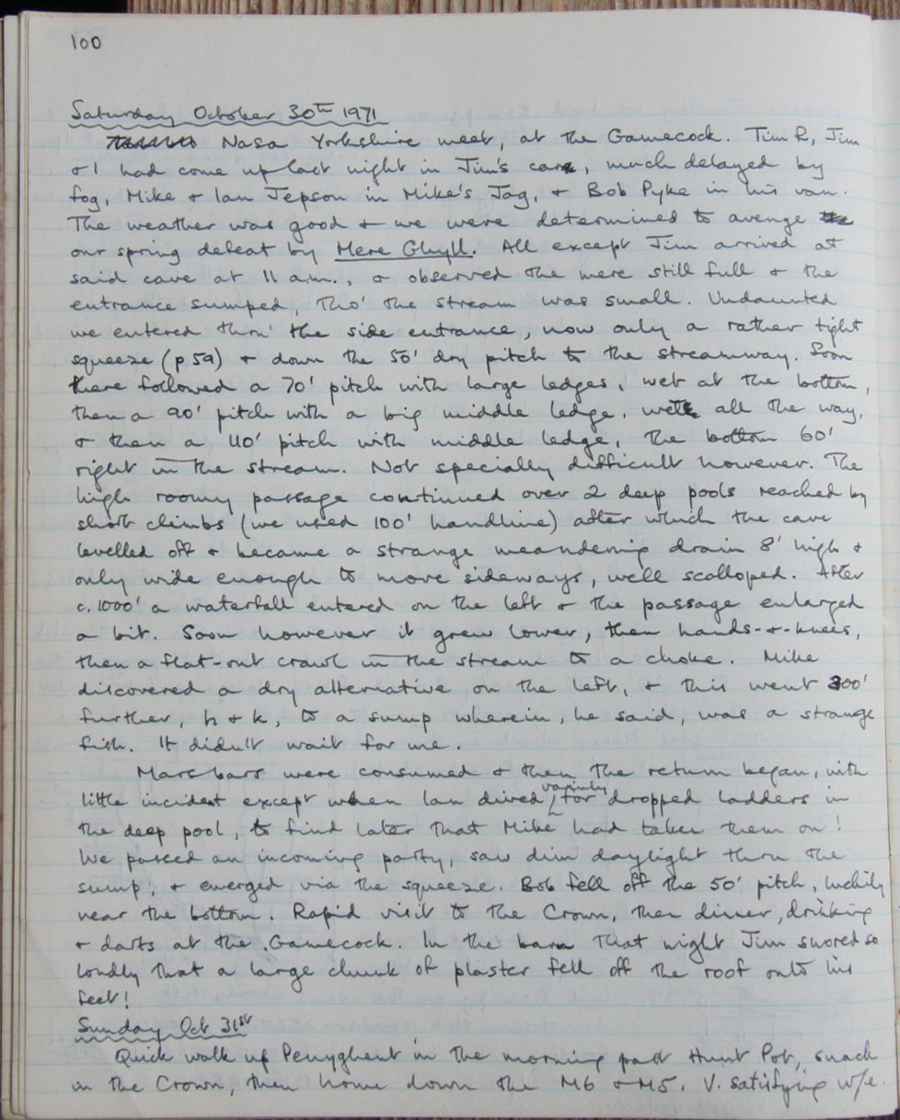 100
Saturday October 30th 1971
Nasa Yorkshire meet, at the Gamecock. Tim R, Jim
& I had come up last night in Jim's car, much delayed by
fog, Mike & Ian Jepson in Mike's Jag, & Bob Pyke in his van.
The weather was good & we were determined to avenge
our spring defeat by Mere Ghyll. All except Jim arrived at
said cave at 11 a.m., & observed the mere still full & the
entrance sumped, tho' the stream was small. Undaunted
we entered thro' the side entrance, now only a rather tight
squeeze (p 59) & down the 50' dry pitch to the streamway. Soon
there followed a 70' pitch with large ledges, wet at the bottom,
then a 90' pitch with a big middle ledge, wet all the way,
& then a 110' pitch with middle ledge, the bottom 60'
right in the stream. Not specially difficult however. The
high roomy passage continued over 2 deep pools reached by
short climbs (we used 100' handline) after which the cave
levelled off & became a strange meandering drain 8' high &
only wide enough to move sideways, well scalloped. After
c. 1000' a waterfall entered on the left & the passage enlarged
a bit. Soon however it grew lower, then hands-&-knees,
then a flat-out crawl in the stream to a choke. Mike
discovered a dry alternative on the left, & this went 300'
further, h & k, to a sump wherein, he said, was a strange
fish. It didn't wait for me.
Mars bars were consumed & then the return began, with
little incident except when Ian dived vainly for dropped ladders in
the deep pool, to find later that Mike had taken them on!
We passed an incoming party, saw dim daylight thru the
sump, & emerged via the squeeze. Bob fell off the 50' pitch, luckily
near the bottom. Rapid visit to the Crown, then dinner, drinking
& darts at the Gamecock. In the barn that night Jim snored so
loudly that a large chunk of plaster fell off the roof onto his
feet!
Sunday Oct 31st
Quick walk up Penyghent in the morning past Hunt Pot, snack
in the Crown, then home down the M6 & M5. V. satisfying w/e.